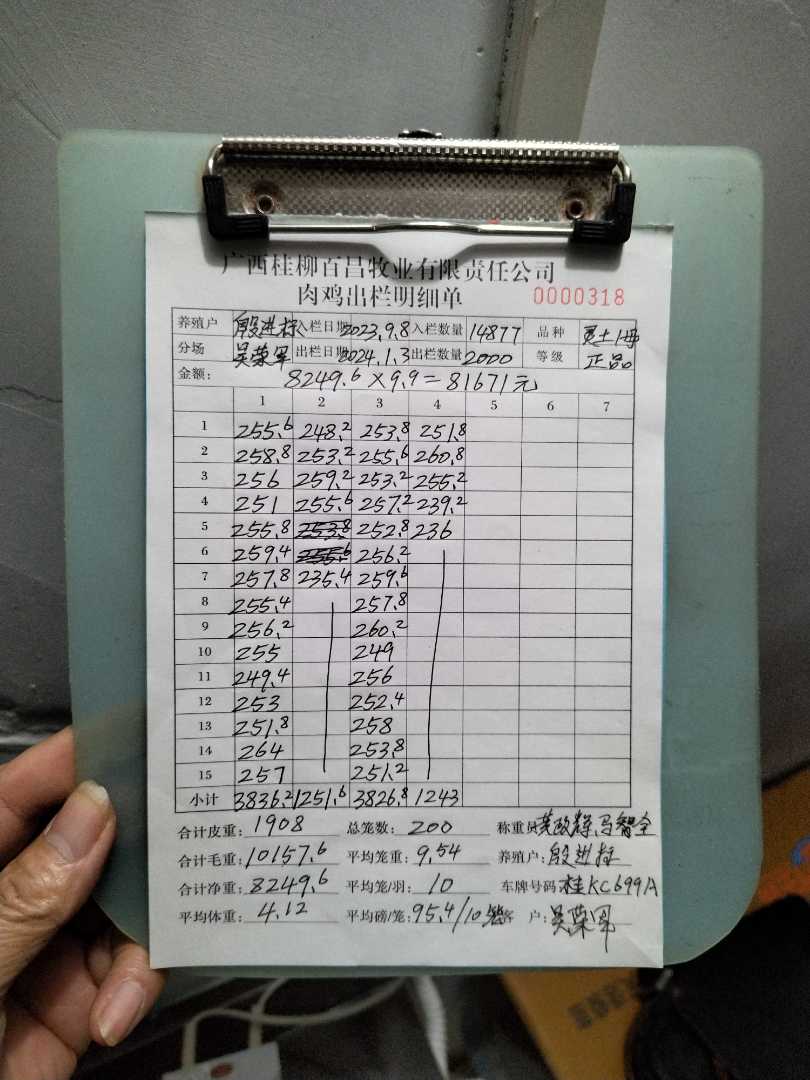 广西桂柳百昌牧业有限责任公司
肉鸡出栏明细单 0000318
养殖户 殷进标 入栏日期 2023.9.8 入栏数量 14877 品种
分场 吴荣军 出栏日期 2024.1.3 出栏数量 2000 等级 正品
金额: 8249.6×9.9=81671元
1 2 3 4 5 6 7
1 255.6 248.2 253.8 251.8
2 258.8 253.2 255.6 260.8
3 256 259.2 253.2 255.2
4 251 255.6 257.2 239.2
5 255.8 253.8 252.8 236
6 259.4 255.6 256.2
7 257.8 235.4 259.6
8 255.4 257.8
9 256.2 260.2
10 255 249
11 249.4 256
12 253 252.4
13 251.8 258
14 264 253.8
15 257 251.2
小计 3836.2 1251.6 3826.8 1243
合计皮重: 1908 总笼数: 200 称重员 马智全
合计毛重: 10157.6 平均笼重: 9.54 养殖户: 殷进标
合计净重: 8249.6 平均笼/羽: 10 车牌号码 桂KC699A
平均体重: 4.12 平均磅/笼: 95.4/10 客户: 吴荣军